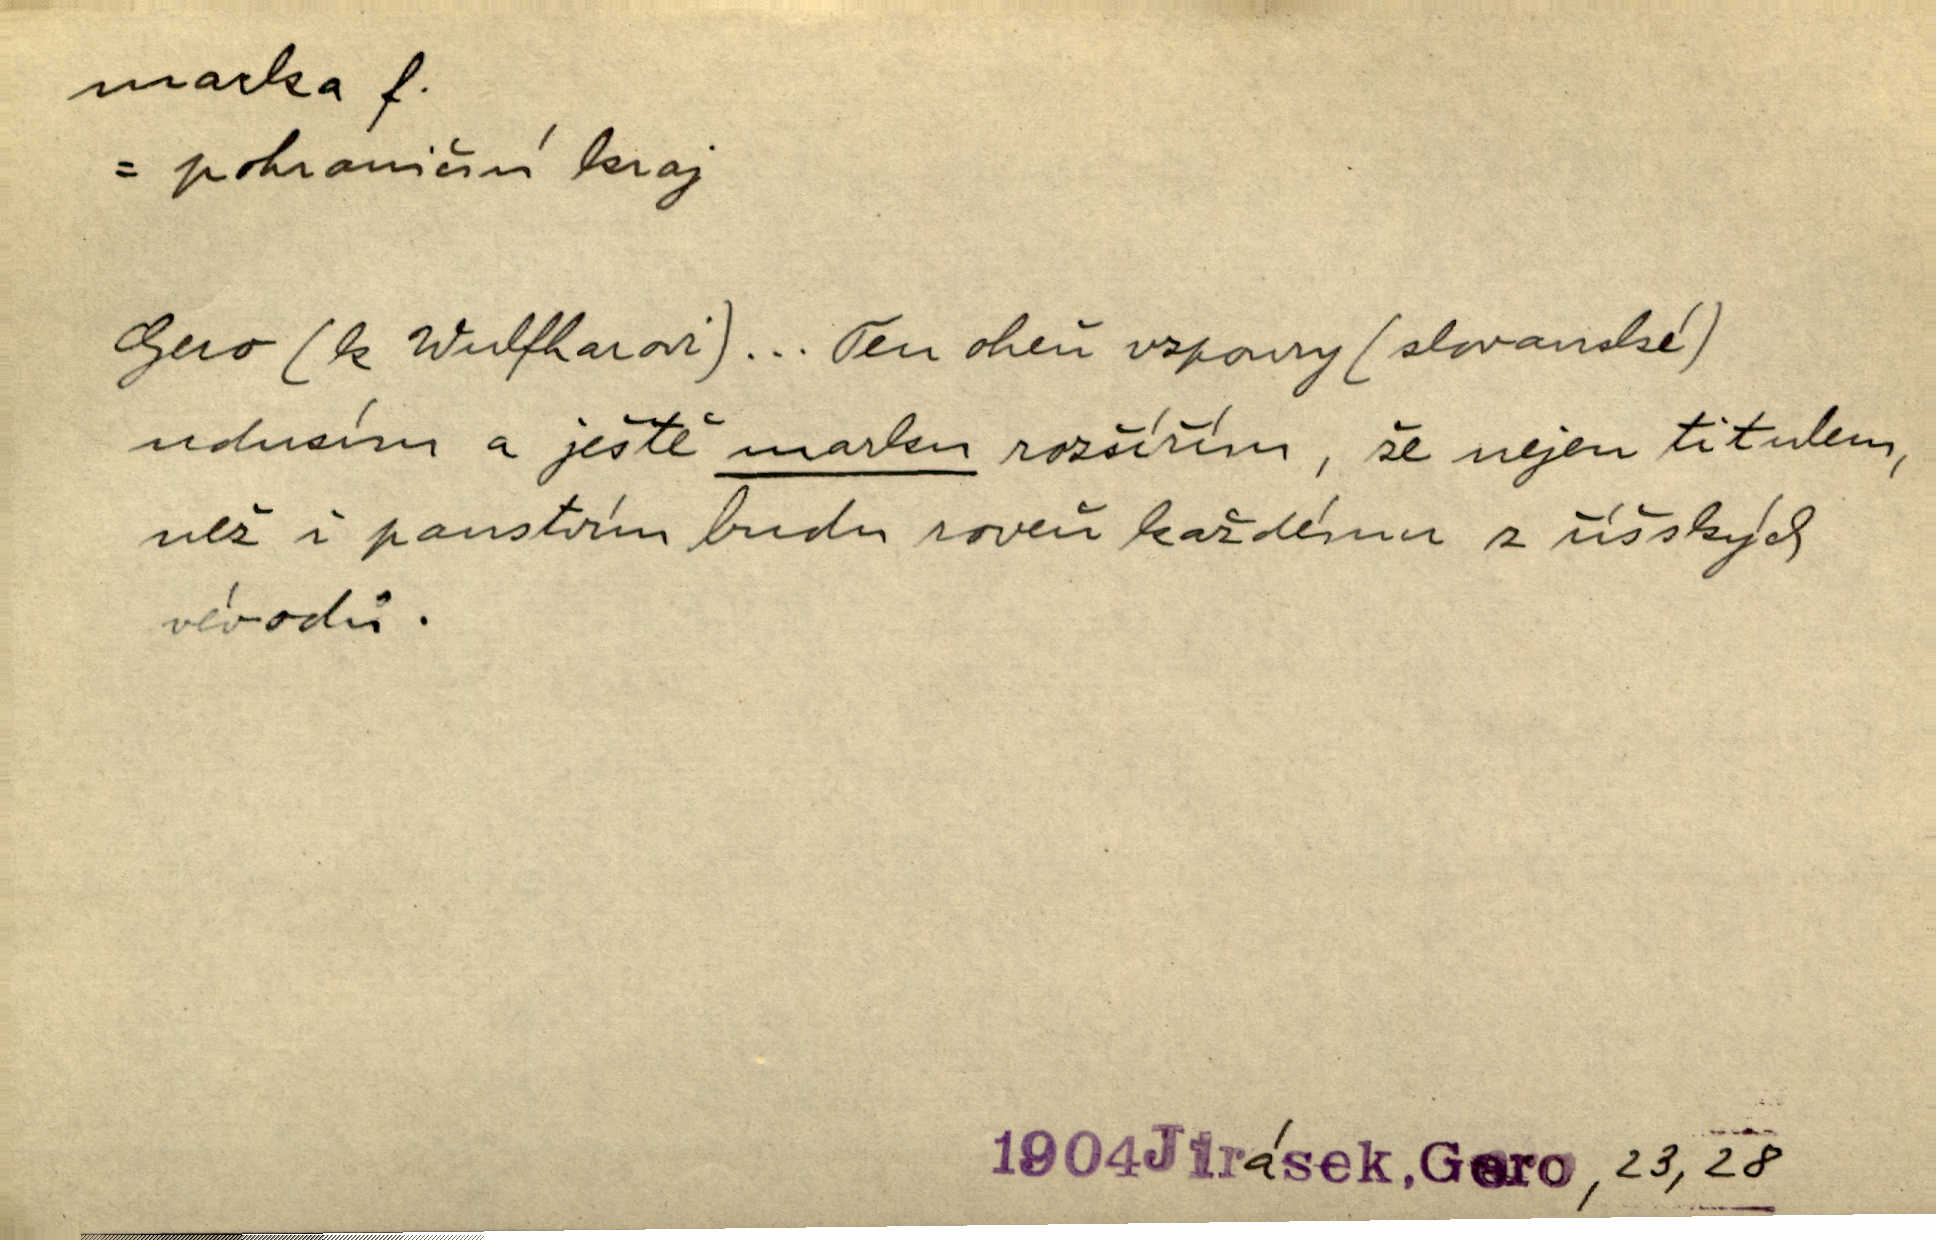 marka f.
= pohraniční kraj
Gero (k Wulfharovi)... Ten oheň vzpoury (slovanské)
udusím a ještě marku rozšířím, že nejen titulem,
než i panstvím budu roveň každému z říšských
vévodů.
1904 Jirásek, Gero, 23, 28